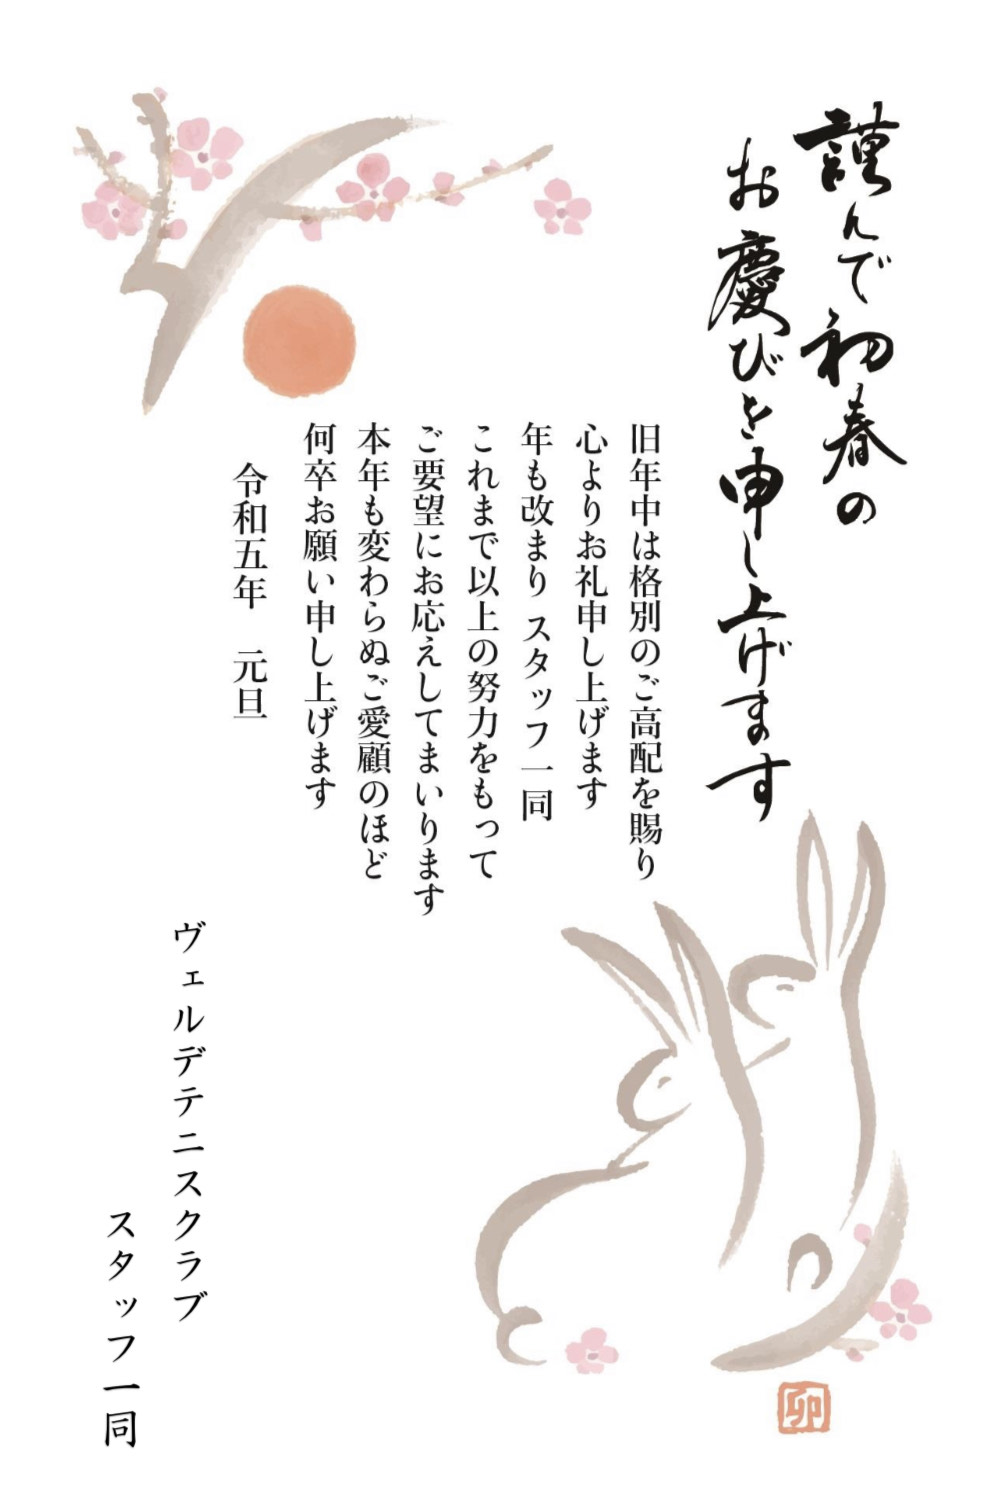 謹んで初春の
お慶びを申し上げます
旧年中は格別のご高配を賜り
心よりお礼申し上げます
年も改まり スタッフ一同
これまで以上の努力をもって
ご要望にお応えしてまいります
本年も変わらぬご愛顧のほど
何卒お願い申し上げます
令和五年　元旦
ヴェルデテニスクラブ
スタッフ一同
卯